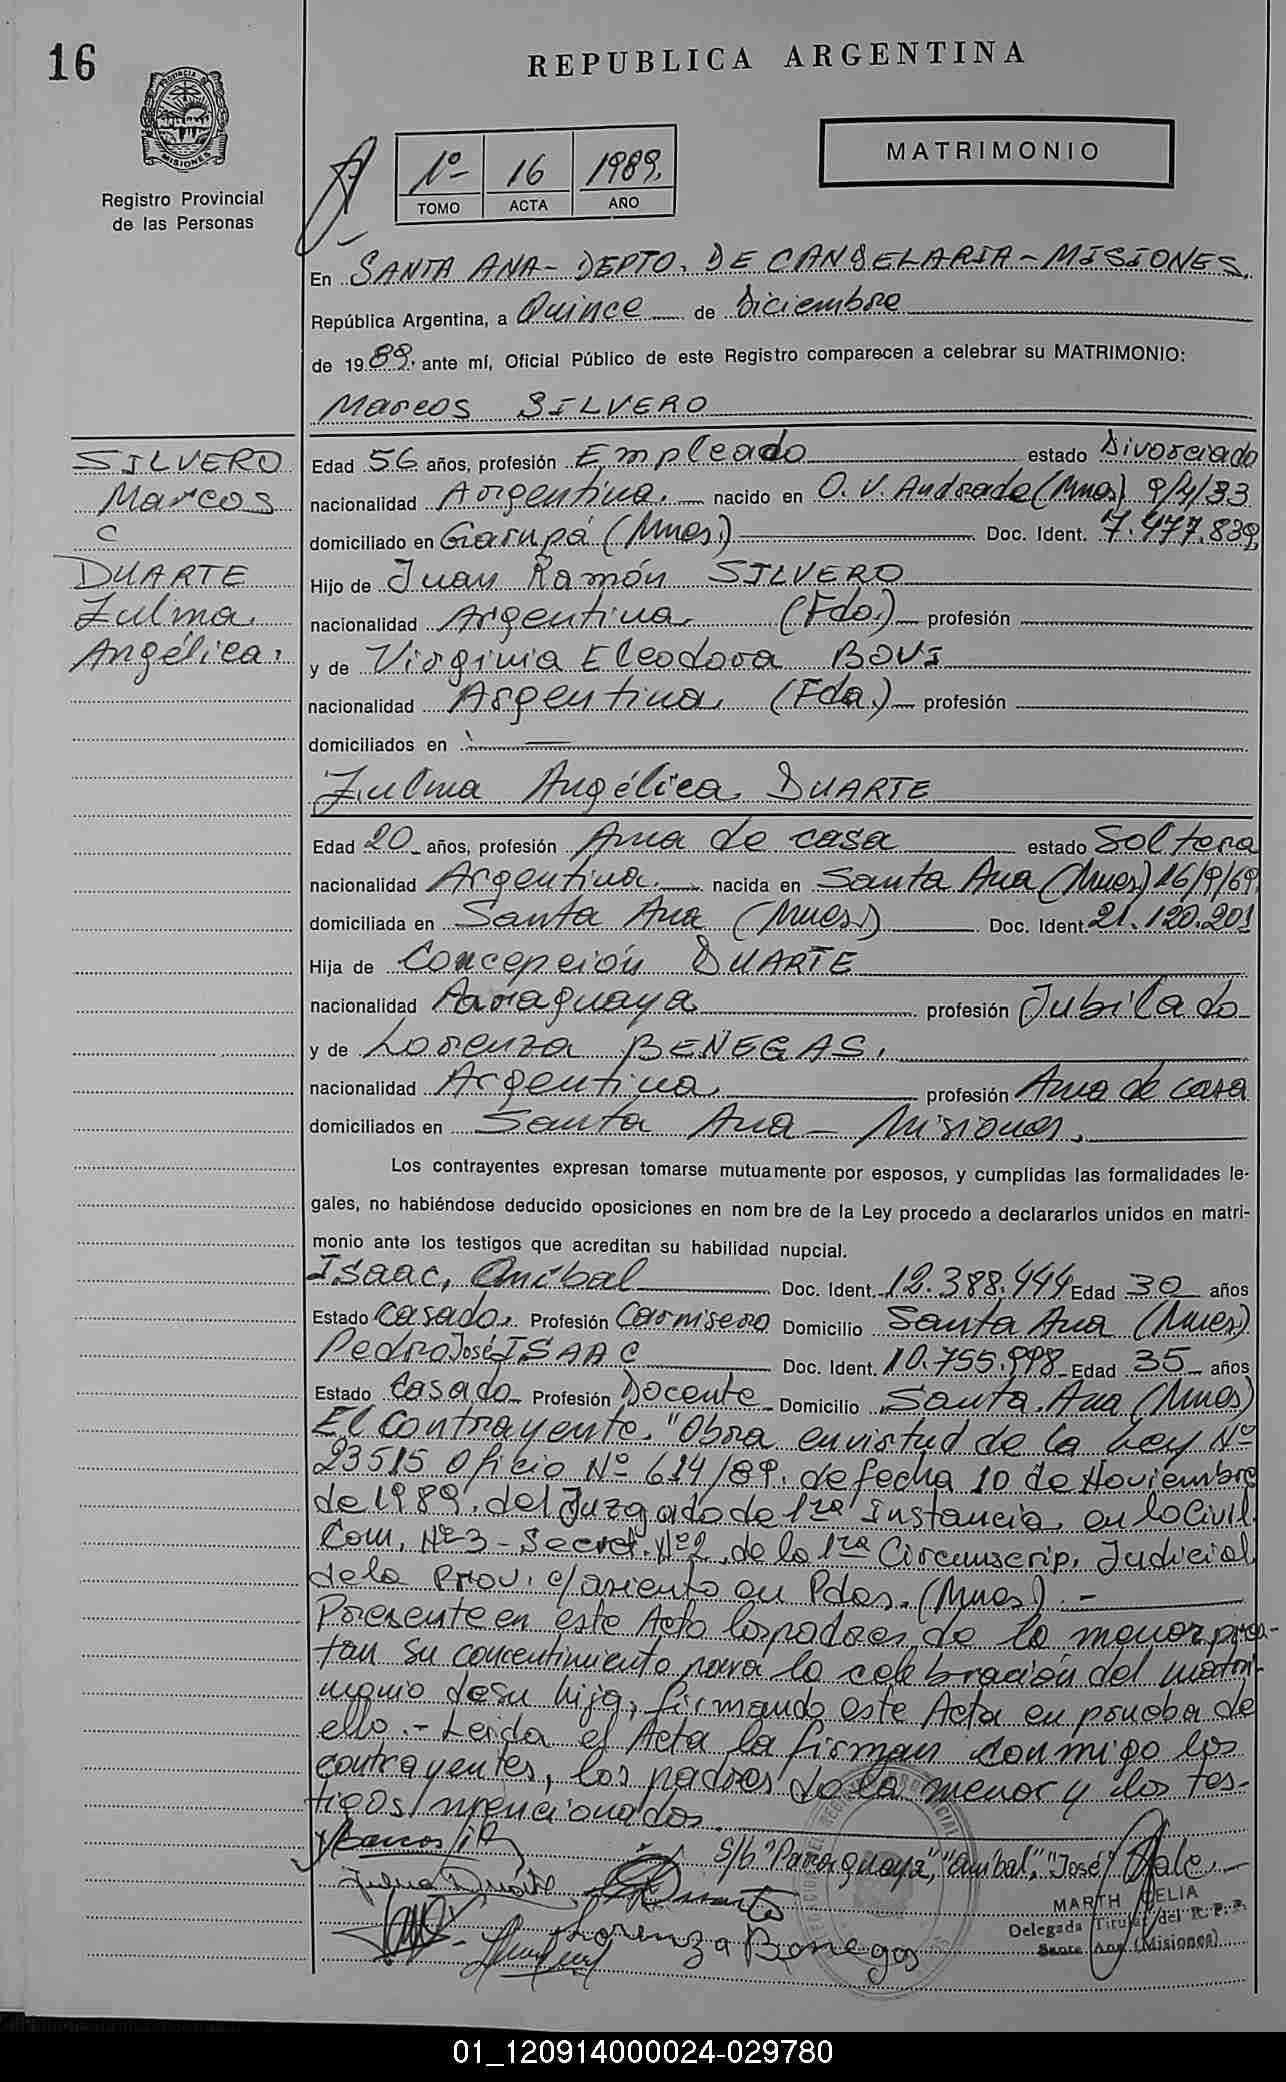 16
REPUBLICA ARGENTINA
PROVINCIA DE
MISIONES
Registro Provincial
de las Personas
1º
TOMO
16
ACTA
1989.
AÑO
MATRIMONIO
En SANTA ANA - DEPTO. DE CANDELARIA - MISIONES.
República Argentina, a Quince de Diciembre
de 1989. ante mí, Oficial Público de este Registro comparecen a celebrar su MATRIMONIO:
Marcos SILVERO
SILVERO
Marcos
C
DUARTE
Zulma
Angélica.
Edad 56 años, profesión Empleado estado Divorciado
nacionalidad Argentina. nacido en O. V. Andrade (Mnes) 9/4/33
domiciliado en Garupá (Mnes.) Doc. Ident. 7.477.839,
Hijo de Juan Ramón SILVERO
nacionalidad Argentina. (Fdo.) profesión
y de Virginia Eleodora BOVI
nacionalidad Argentina (Fda.) profesión
domiciliados en
Zulma Angélica DUARTE
Edad 20 años, profesión Ama de casa estado Soltera
nacionalidad Argentina. nacida en Santa Ana (Mnes) 16/9/69
domiciliada en Santa Ana (Mnes.) Doc. Ident. 21.120.201
Hija de Concepción DUARTE
nacionalidad Paraguaya profesión Jubilado
y de Lorenza BENEGAS.
nacionalidad Argentina profesión Ama de casa
domiciliados en Santa Ana - Misiones.
Los contrayentes expresan tomarse mutuamente por esposos, y cumplidas las formalidades le-
gales, no habiéndose deducido oposiciones en nom bre de la Ley procedo a declararlos unidos en matri-
monio ante los testigos que acreditan su habilidad nupcial.
Isaac, Anibal Doc. Ident. 12.388.444 Edad 30 años
Estado Casado. Profesión Carnisero Domicilio Santa Ana (Mnes)
Pedro José ISAAC Doc. Ident. 10.755.998 Edad 35 años
Estado Casado Profesión Docente Domicilio Santa Ana (Mnes)
El contrayente. "Obra en virtud de la Ley Nº
23515 Oficio Nº 614/89. de fecha 10 de Noviembre
de 1989. del Juzgado de 1ra Instancia, en lo Civil.
Com. Nº 3 - Secret. Nº 2, de la 1ra Circunscrip. Judicial
de la Prov. c/asiento en Pdas. (Mnes). -
Presente en este Acto los padres de la menor pres-
tan su concentimiento para la celebración del matri-
monio de su hija, firmando este Acta en prueba de
ello. - Leida el Acta la firman conmigo los
contrayentes, los padres de la menor y los tes-
tigos mencionados.
S/b "Paraguaya", "Anibal", "José" Vale. -
Zulma Duarte
Duarte
Lorenza Benegas
MARTH CELIA
Delegada Titular del R. P. P.
Santa Ana (Misiones)
01_120914000024-029780